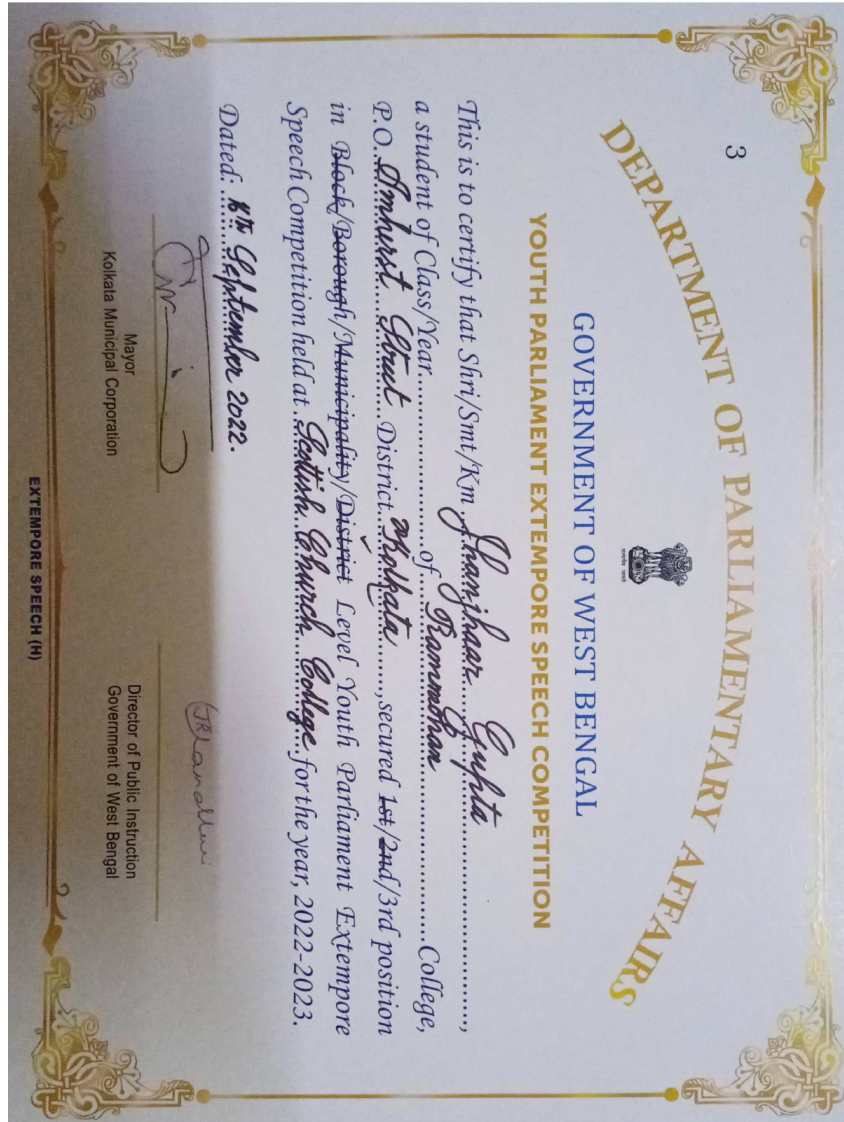 3
DEPARTMENT OF PARLIAMENTARY AFFAIRS
सत्यमेव जयते
GOVERNMENT OF WEST BENGAL
YOUTH PARLIAMENT EXTEMPORE SPEECH COMPETITION
This is to certify that Shri/Smt/Km. Jhanjhaer Gupta,
a student of Class/Year of Rammohan College,
P.O. Amhurst Street District Kolkata, secured 1st/2nd/3rd position
in Block/Borough/Municipality/District Level Youth Parliament Extempore
Speech Competition held at Scottish Church College for the year, 2022-2023.
Dated: September 2022.
Mayor
Kolkata Municipal Corporation
Director of Public Instruction
Government of West Bengal
EXTEMPORE SPEECH (H)